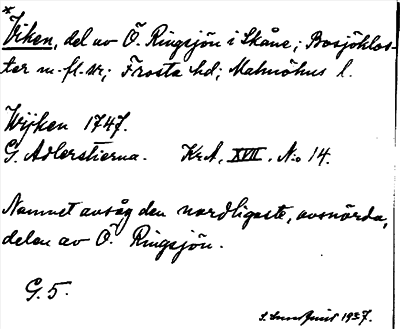 *
Viken, del av Ö. Ringsjön i Skåne; Bosjöklos-
ter m. fl. sr; Frosta hd; Malmöhus l.
Wijken 1747.
G. Adlerstierna. KrA, XVII, No 14.
Namnet avsåg den nordligaste, avsnörda,
delen av Ö. Ringsjön.
G. 5.
S. Sundquist 1937.